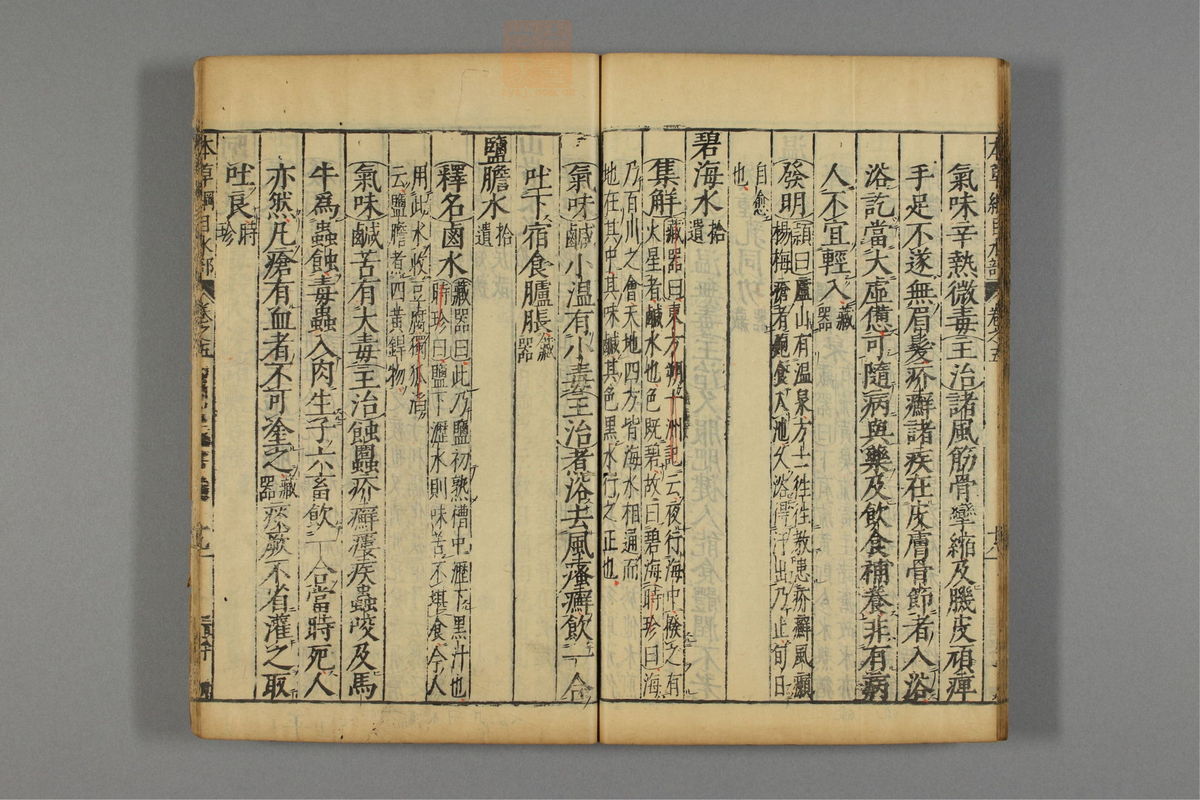 氣味辛熱微毒主治諸風筋骨攣縮及肌皮頑痺
手足不遂無眉髮疥癬諸疾在皮膚骨節者入浴
浴訖當大虛憊可隨病與藥及飲食補養非有病
人不宜輕入藏器
發明頴曰廬山有溫泉方士往往教患疥癬風癩
楊梅瘡者飽食入池久浴得汗出乃止旬日
自愈
也
碧海水拾遺
集解藏器曰東方朔十洲記云夜行海中撥之有
火星者鹹水也色既碧故曰碧海時珍曰海
乃百川之會天地四方皆海水相通而
地在其中其味鹹其色黑水行之正也
氣味鹹小溫有小毒主治煮浴去風瘙癬飲一合
吐下宿食臚脹藏器
鹽膽水拾遺
釋名鹵水藏器曰此乃鹽初熟槽中瀝下黑汁也
時珍曰鹽下瀝水則味苦不堪食今人
用此水收豆腐獨孤滔
云鹽膽煮四黃銲物
氣味鹹苦有大毒主治蝕䘌疥癬瘻疾蟲咬及馬
牛為蟲蝕毒蟲入肉生子六畜飲一合當時死人
亦然凡瘡有血者不可塗之藏器痰厥不省灌之取
吐良時珍
本草綱目水部 卷之五